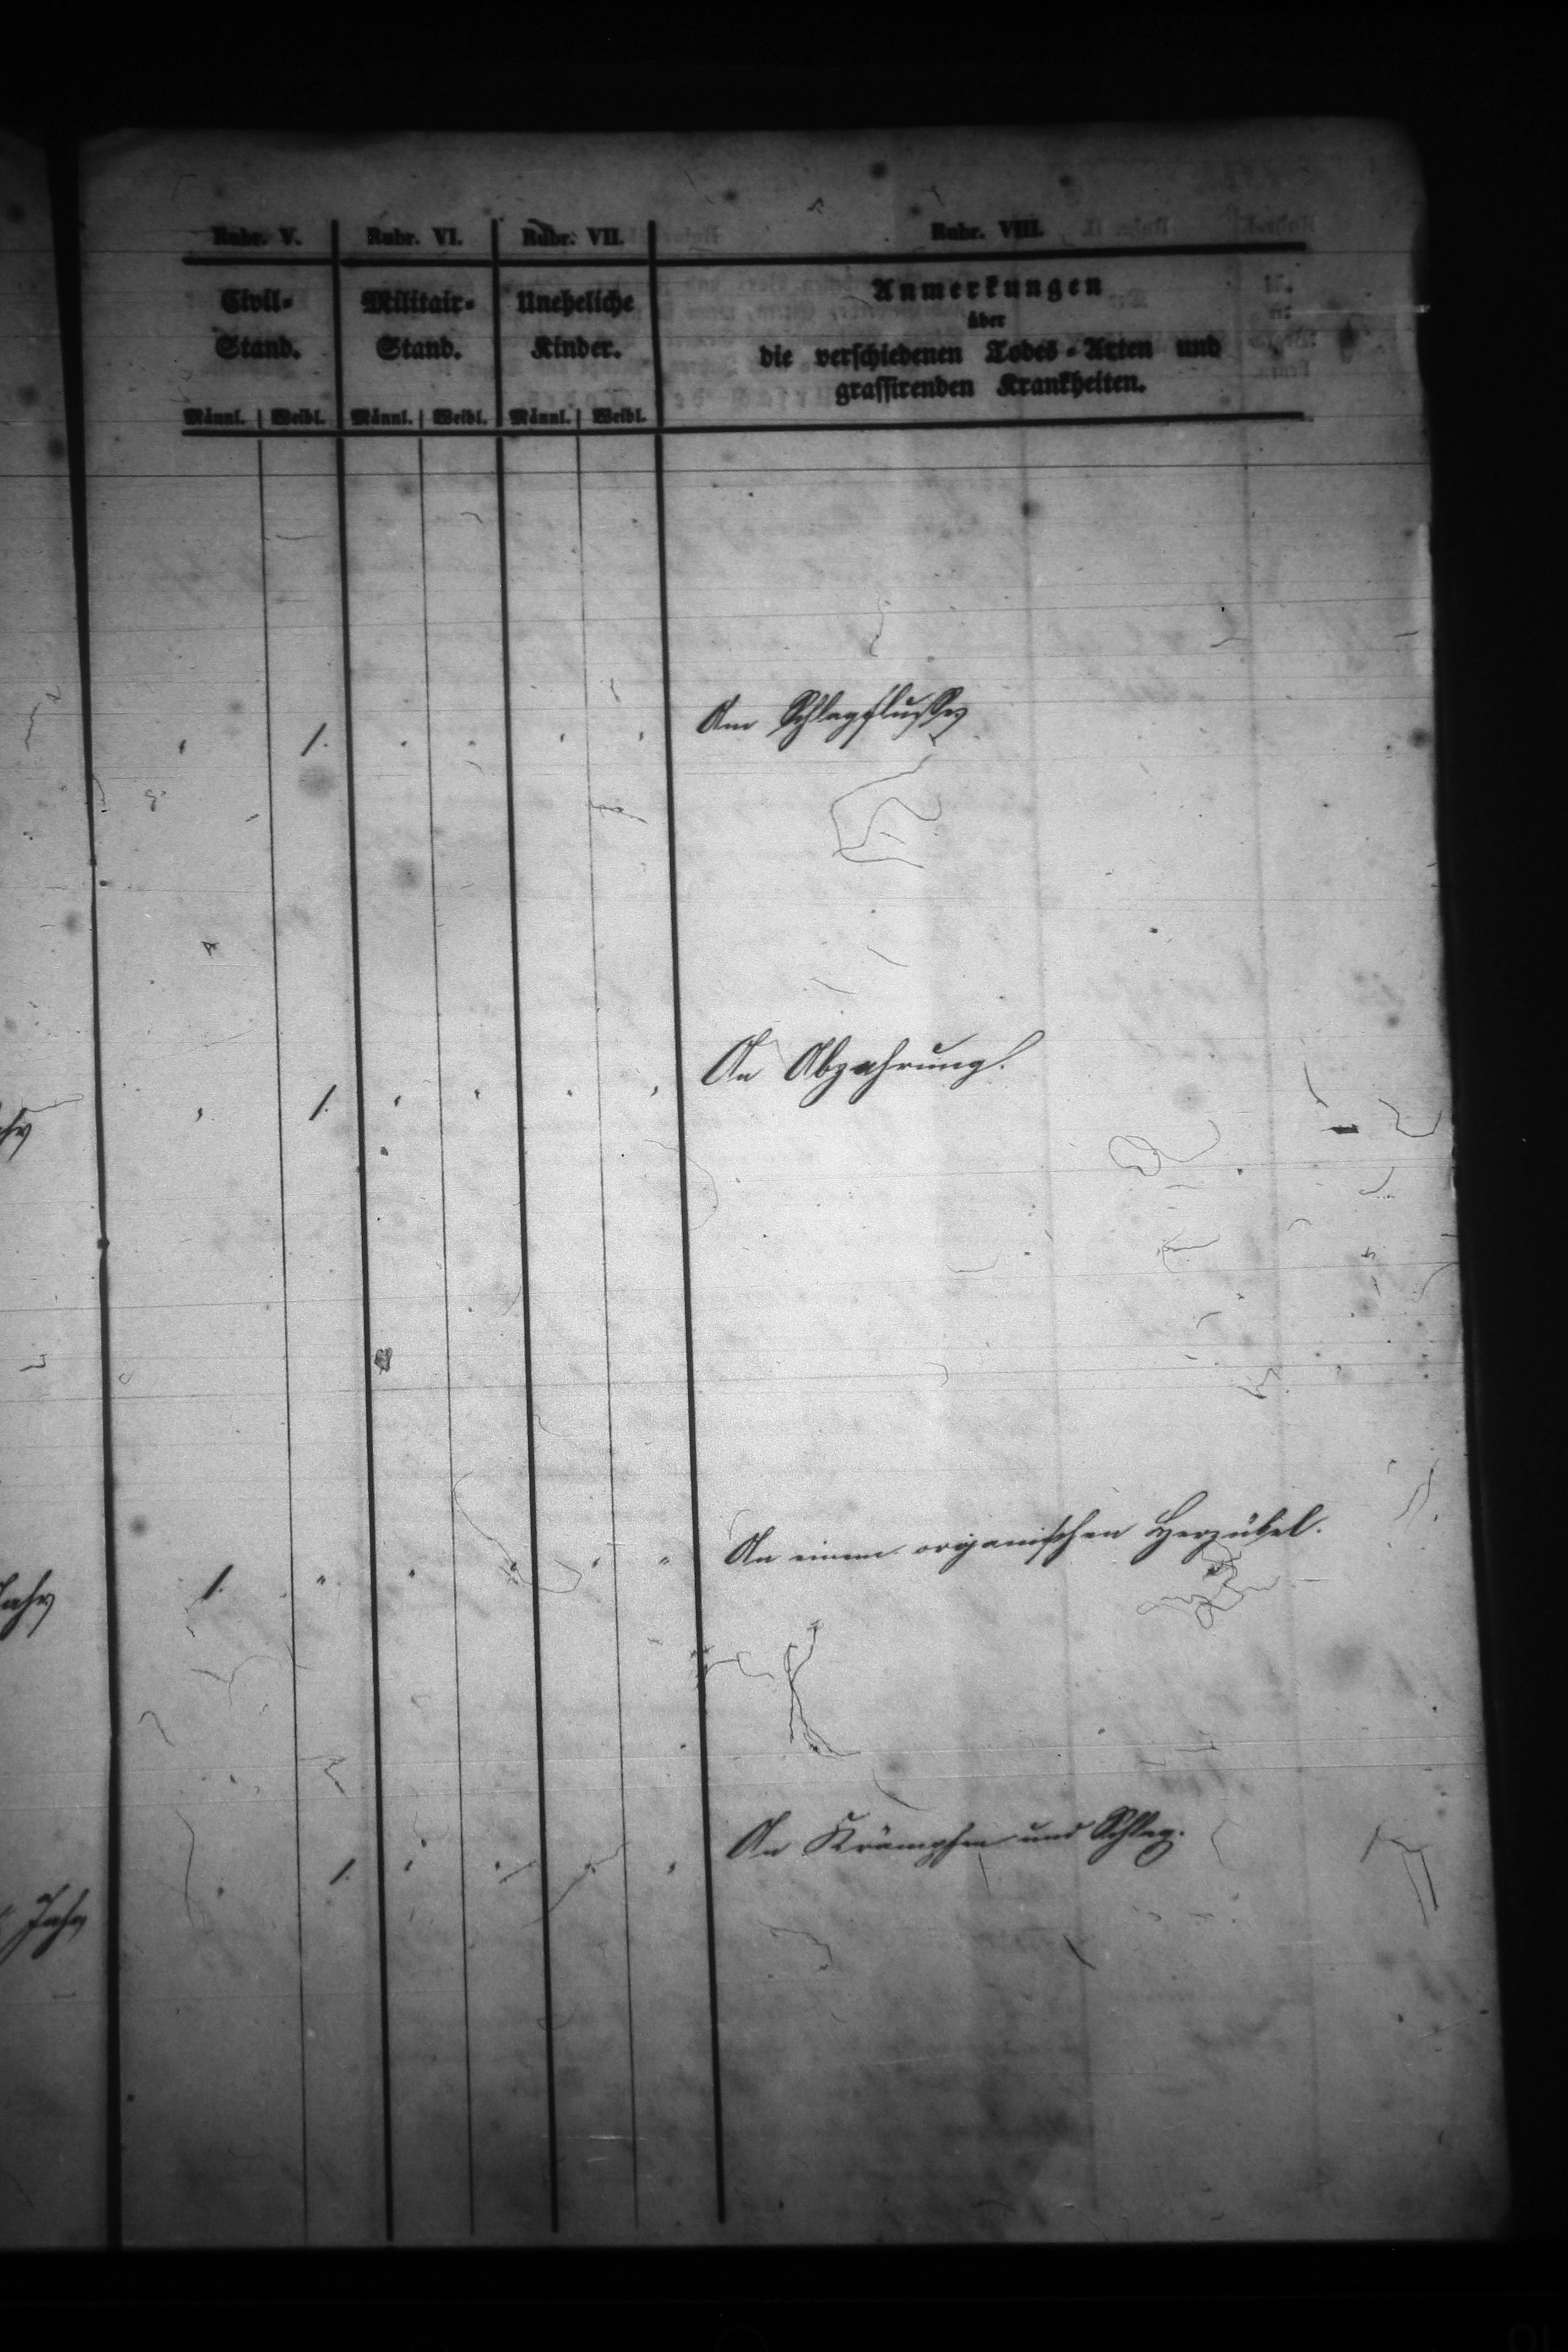 Rubr. V. Rubr. VI. Rubr. VII. Rubr. VIII.
Civil- Militair- Uneheliche Anmerkungen
Stand. Stand. Kinder. über
die verschiedenen Todes-Arten und
grassirenden Krankheiten.
Männl. Weibl. Männl. Weibl. Männl. Weibl.
1. Am Schlagflusse
1. An Abzahrung.
1. An einem organischen Herzübel.
Jahr
1. An Krämpfen und Schlag.
Jahr